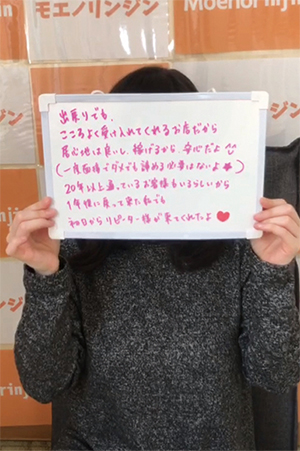 Moenorinjin
モエノリンジン
出戻りでも、
こころよく受け入れてくれるお店だから
居心地は良いし、稼げるから、安心だよ
(一度面接でダメでも諦める必要はないよ★)
20年以上通っているお客様もいるらしいから
1年経い戻って来た私でも
初日からリピーター様が来てくれたよ♥
ジン
モエノリンジン